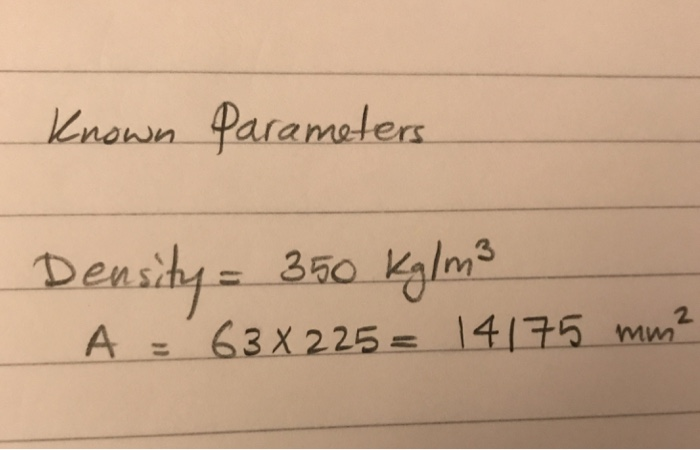 Known Parameters
Density = 350 Kg/m³
A = 63 X 225 = 14175 mm²